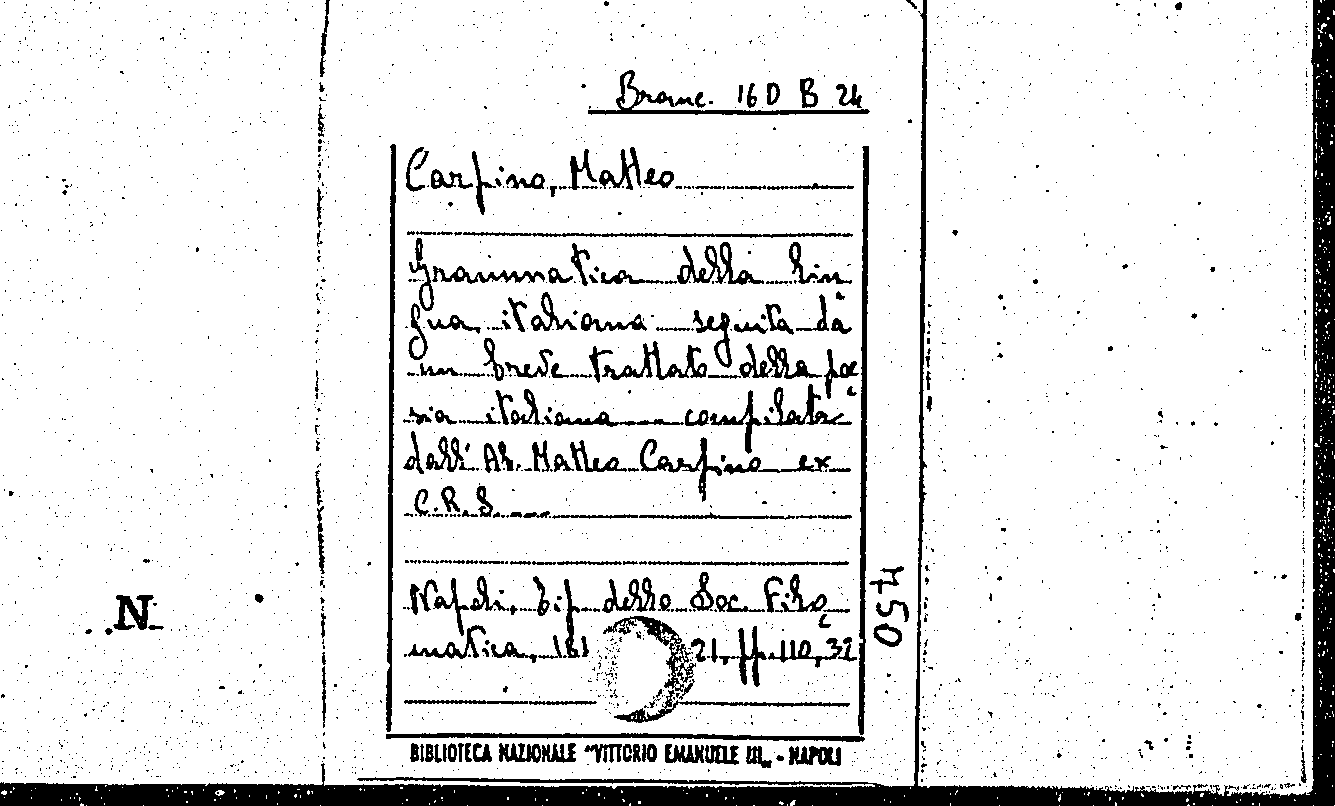 Branc. 16 D B 24
Carpino, Matteo
Grammatica della lin
gua italiana seguita da
un breve trattato della poe
sia italiana ... compilata
dall' Ab. Matteo Carpino ex
C.R.S. ...
Napoli, Tip. della Soc. Filo
matica, 181 21, pp. 110, 32
450
N.
BIBLIOTECA NAZIONALE "VITTORIO EMANUELE III„ - NAPOLI